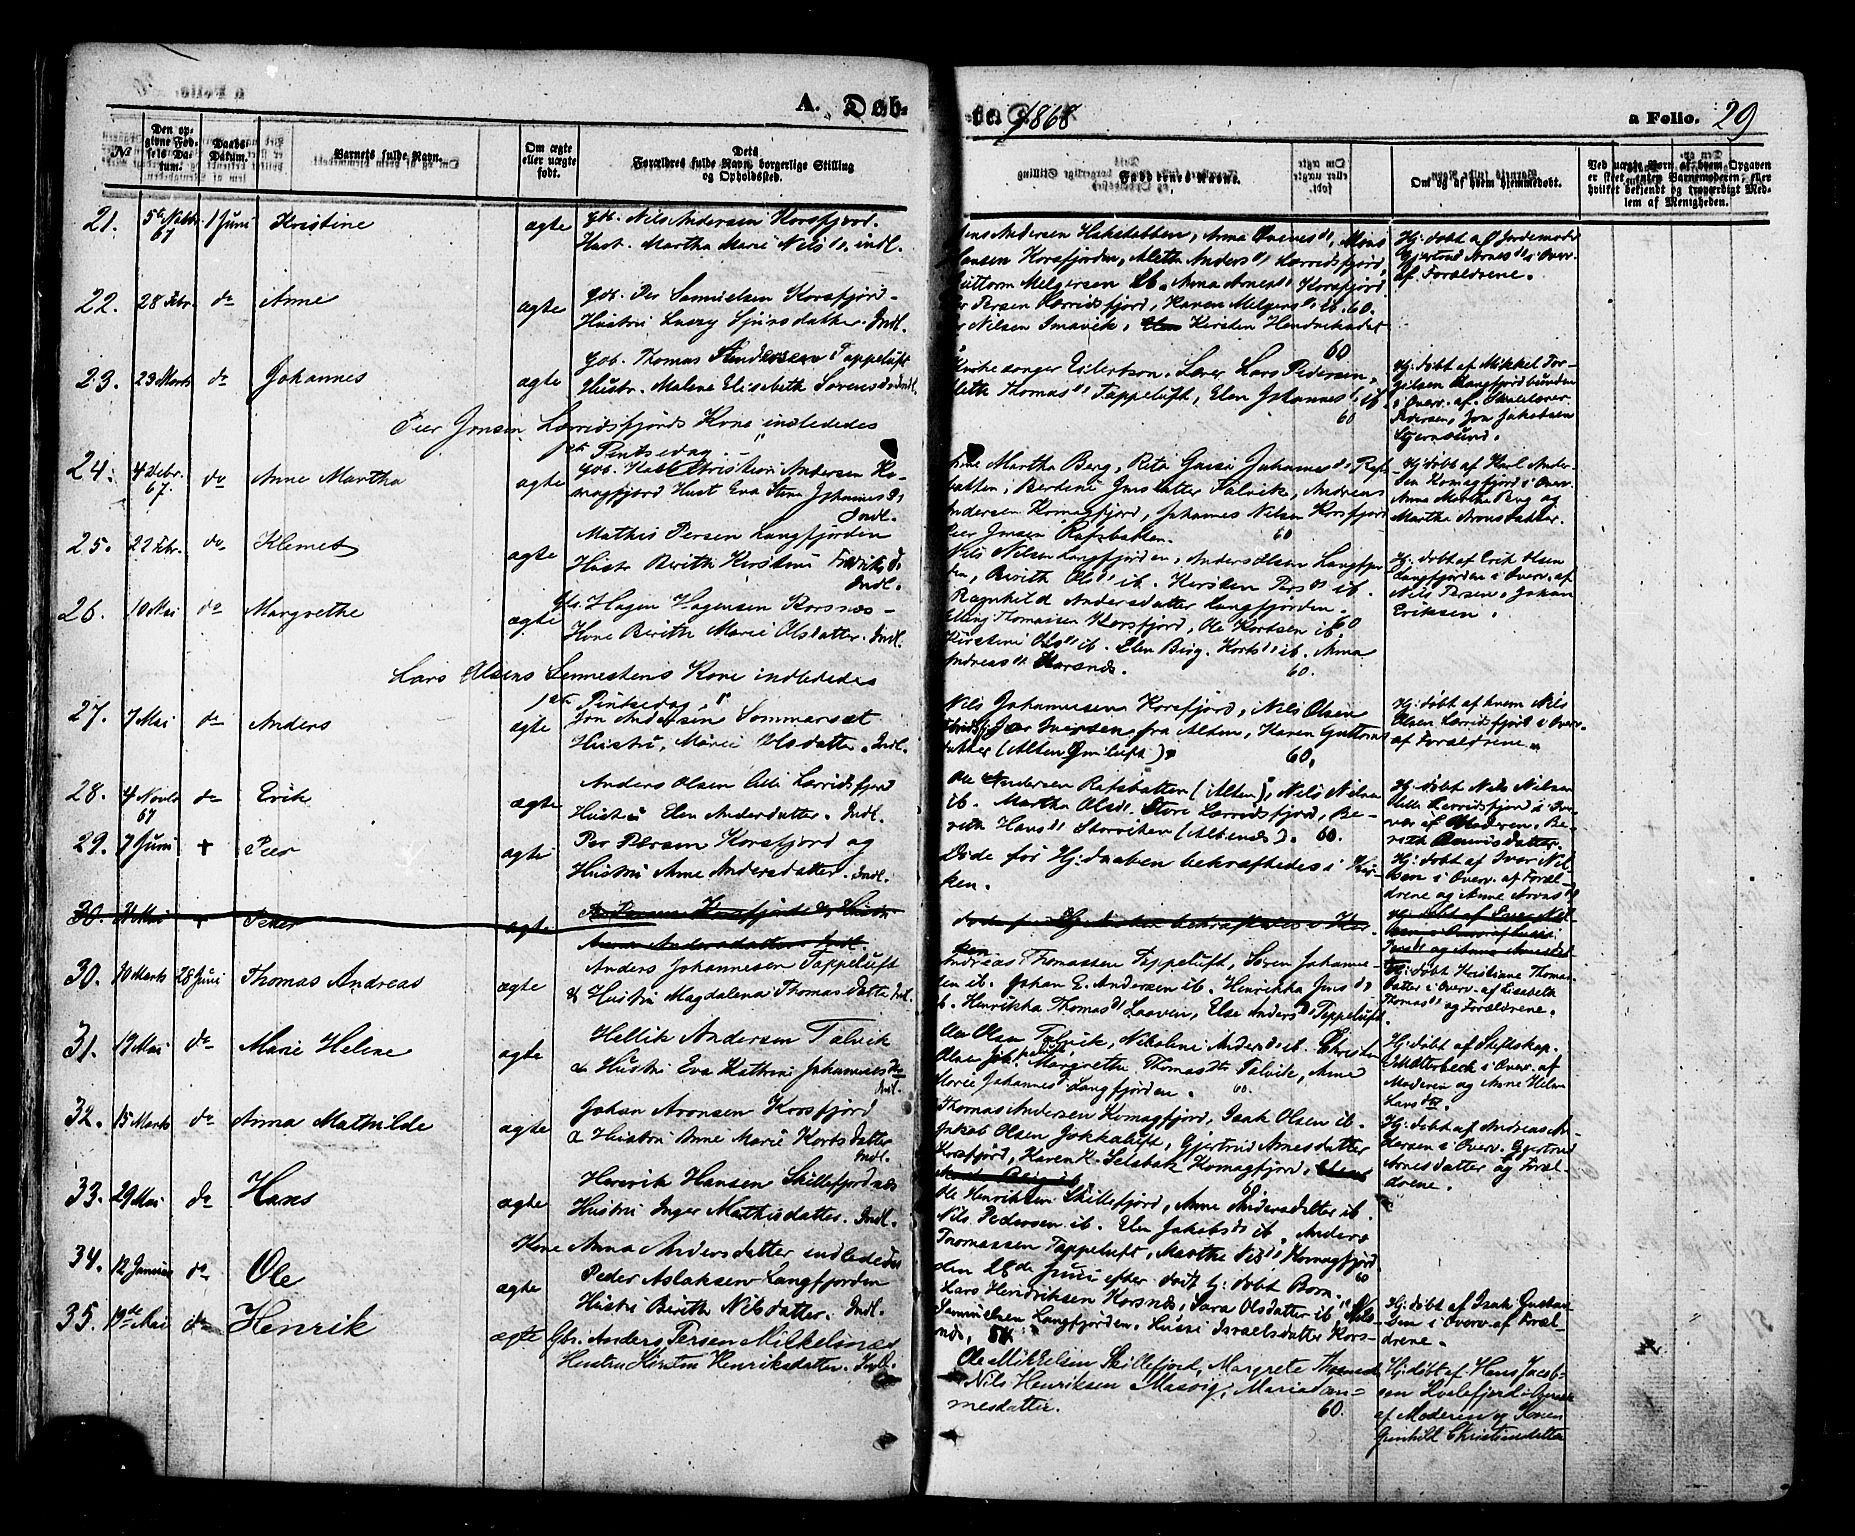 A. Døb-
te. 1868
a Folio. 29
№
Den op-
givne Fød-
sels Da-
tum.
Daabs
Datum.
Barnets fulde Navn.
Om ægte
eller uægte
født.
Dets
Forældres fulde Navn, borgerlige Stilling
og Opholdssted.
Faddernes Navne.
Om og af hvem hjemmedøbt.
Ved uægte Børn, af hvem Opgaven
er skeet, enten Barnemoderen, eller
hvilket bekjendt og troværdigt Med-
lem af Menigheden.
21. 67 1 Juni Kristine ægte Gbr. Nils Andersen Korsfjord.
Hust. Martha Marie Nils D. indl.
Andersen Hakstabben, Anna
Hansen Korsfjorden, Alette Anders D. Lerridsfjord,
Melgersen ib. Anna Arnes D. Korsfjord
Hj. døbt af Jordemoder
Gjertrud Arnes D. i Over.
af Forældrene.
22. 28 Febr. do Anne ægte Gbr. Per Samuelsen Korsfjord
Hustru Lucy Sjursdatter. Indl.
Persen Lerridsfjord, Karen Melgers D. ib. 60.
Nilsen Smavik, Kirsten
60
23. 23 Marts do Johannes ægte Gbr. Thomas Andersen Tappeluft
Hustr. Malene Elisabeth Sørens D. Indl.
Kirkesanger Eilertsen. Lærer Lars Pedersen,
Thomas D. Tappeluft, Elen Johannes D. ib.
60
Hj. døbt af Mikkel Tor-
gilsen Langfjordbunden
i Overv. af Skolelærer
Pedersen, Jon Jakobsen
Stjernsund.
Peer Jonsen Lerridsfjords Kone indlededes
1ste Pintsedag.
24. 4 Debr. 67. do Anne Martha ægte Gbr. Kristian Andersen Ko-
magfjord Hust Eva Stina Johannes D.
Indl.
Anne Martha Berg, Johannes D. Rafs-
batten, Berdine Jensdatter Talvik, Andreas
Andersen Komagfjord, Johannes Nilsen Korsfjord
Peer Jonsen Rafsbatten. 60
Hj. døbt af Karl Ander-
sen Komagfjord i Overv.
Anna Martha Berg og
Martha Aronsdatter.
25. 22 Febr. do Klemet ægte Mathis Persen Langfjorden
Hustr Berith Kirstine Fredriks D.
Indl.
Nils Nilsen Langfjorden, Anders Olsen Langfjor-
den, Berith Ols D. ib. Kersten Pers D. ib.
Ragnhild Andersdatter Langfjorden.
Hj. døbt af Erik Olsen
Langfjorden i Overv. af
Nils Persen, Johan
Eriksen.
26. 10 Mai do Margrethe ægte Gbr. Hagen Hagensen Korsnæs
Kone Berith Marie Olsdatter. Indl.
Elling Thomassen Korsfjord, Ole Kortsen ib. 60
Kirstine Ols D. ib. Elen Berg. Korts D. ib. Anna
Andreas D. Korsnæs. 60.
Lars Olsens Lennestens Kone indlededes
1ste Pintsedag.
27. 7 Mai do Anders ægte Jon Andersen Sommarset
Hustru, Marie Olsdatter. Indl.
Nils Johannesen Korsfjord, Nils Olsen
Iversen fra Alten, Karen Guttorms-
datter (Alten) 60.
Hj. døbt af hvem Nils
Olsen Lerridsfjord i Overv
af Forældrene.
28. 4 Novbr 67 do Erik ægte Anders Olsen Lille Lerridsfjord
Hustru Elen Andersdatter. Indl.
Ole Andersen Rafsbatten (Alten), Nils Nilsen
ib. Martha Ols D. Store Lerridsfjord, Be-
reth Hans D. Storviken (Altenæs). 60.
Hj. døbt af Nils Nilsen
Lille Lerridsfjord i Over-
vær af Moderen, Be-
reth
29. 7 Juni + Peer ægte Per Persen Korsfjord og
Hustru Anne Andersdatter. Indl.
Døde før Hj. daaben bekræftedes i Kir-
ken.
Hj. døbt af Ivar Nil-
sen i Overv. af Foræl-
drene og Anne Arons D.
30. Mai + Peter ægte Per Persen Korsfjord & Hustru
Anne Andersdatter Indl.
døde før Hj. daaben bekræftedes i Kir-
ken
30. 10 Marts 28 Juni Thomas Andreas ægte Anders Johannesen Tappeluft
& Hustru Magdalena Thomasdatter Indl.
Andreas Thomassen Tappeluft, Søren Johanne-
sen ib. Johan E. Andersen ib. Henrikka Jens D.
ib. Henrikka Thomas D. Laaven, Else Anders D. Tappeluft.
Hj. døbt Kristiane Thomas-
datter i Overv. af Lisabeth
Thomas D. og Forældrene.
31. 19 Mai do Marie Heline ægte Hellik Andersen Talvik
& Hustru Eva Kathrine Johannes D.
Indl.
Ole Olsen Talvik, Nikoline Anders D. ib. Christen
Olsen Margrethe Thomas D. Talvik, Anne
Marie Johannes D. Langfjorden. 60.
Hj. døbt af Stiftskap.
Utterbeck i Overv. af
Moderen og Anne Helene
Hans D.
32. 15 Marts do Anna Mathilde ægte Johan Aronsen Korsfjord
& Hustru Anne Marie Kortsdatter
Indl.
Thomas Andersen Komagfjord, Isak Olsen ib.
Jakob Olsen Jokkaluft, Gjertrud Arnesdatter
Korsfjord, Karen K. Selsbak Komagfjord,
60
Hj. døbt af Andreas An-
dersen i Overv. Gjertrud
Arnesdatter og Foræl-
drene.
33. 29 Mai do Hans ægte Henrik Hansen Skillefjordnæs
Hustru Inger Mathisdatter. Indl.
Ole Henriksen Skillefjord, Anne Andersdatter ib.
Nils Pedersen ib. Elen Jakobs D. ib. Anders
Thomassen Tappeluft, Marthe Nils D. Komagfjord.
60
Kone Anna Andersdatter indlededes
den 28de Juni efter dødt Hj. døbt Barn.
34. 12 Januar do Ole ægte Peder Aslaksen Langfjorden
Hustru Berith Nilsdatter. Indl.
Lars Hendriksen Korsnæs, Sara Olsdatter ib. Nils
Samuelsen Langfjorden. Israelsdatter Kors-
næs.
Hj. døbt af Isak Gustav-
sen i Overv. af Foræl-
drene.
35. 19de Mai do Henrik ægte Gbr. Anders Persen Mikkelsnæs
Hustru Kirsten Henriksdatter. Indl.
Ole Mikkelsen Skillefjord, Margrete Thomasd
Nils Henriksen Maria Han-
nesdatter. 60.
Hj. døbt af Hans Jacob-
sen Kvalefjord i Overvær
af Moderen og Konen
Gunhild Christiansdatter